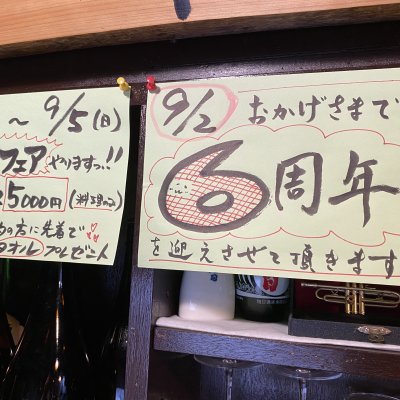 ～ 9/5(日)
フェア やりますっ!!
5000円(料理のみ)
の方に先着で
タオルプレゼント
9/2 おかげさまで
6周年
を迎えさせて頂きます